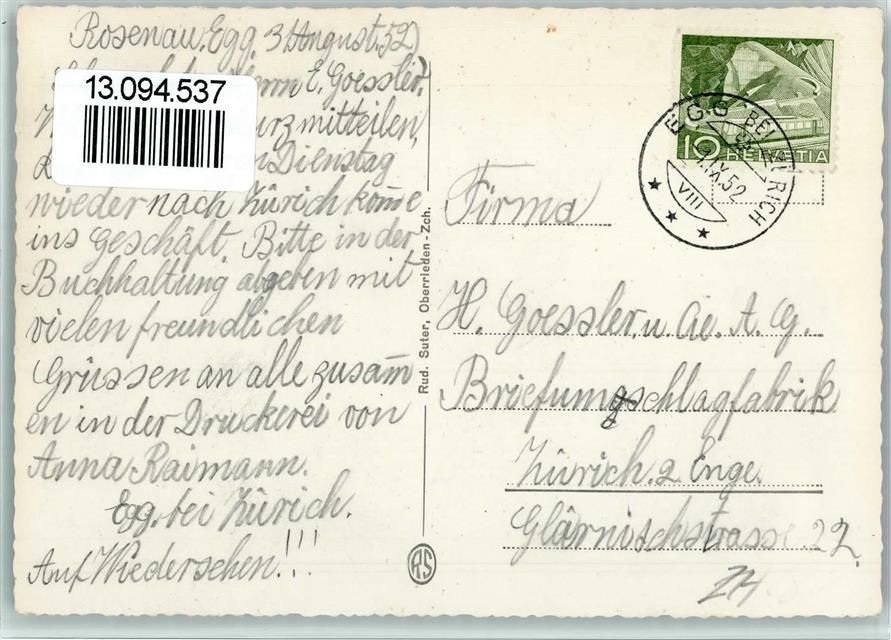 Rosenau. Egg. 31 August. 52)
E. Goessler.
13.094.537
kurz mitteilen,
Dienstag
wieder nach Zürich kom̅e
ins Geschäft. Bitte in der
Buchhaltung abgeben mit
vielen freundlichen
Grüssen an alle zusam̅
en in der Druckerei von
Anna. Raimann.
Egg. bei Zürich.
Auf Wiedersehen!!!
Rud. Suter, Oberrieden-Zch.
RS
10 HELVETIA
EGG (BEI ZÜRICH)
IX.52
VIII
Firma
H. Goessler. u. Cie. A. G.
Briefumschlagfabrik
Zürich. 2 Enge.
Glärnischstrasse 22.
ZH